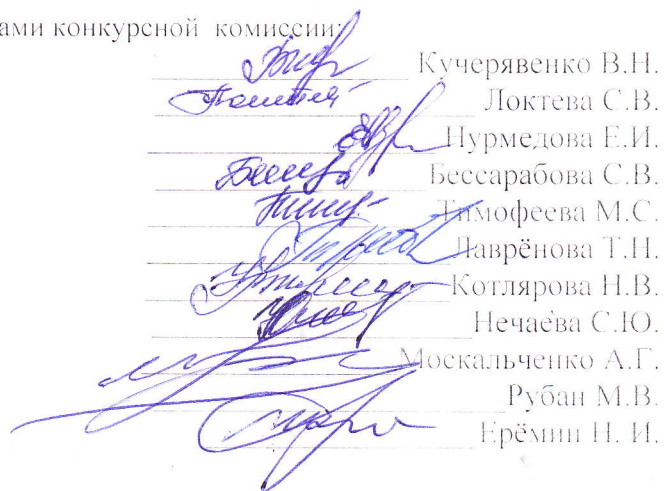 ами конкурсной комиссии:
Кучерявенко В.Н.
Локтева С.В.
Нурмедова Е.И.
Бессарабова С.В.
Тимофеева М.С.
Лаврёнова Т.Н.
Котлярова Н.В.
Нечаева С.Ю.
Москальченко А.Г.
Рубан М.В.
Ерёмин Н. И.